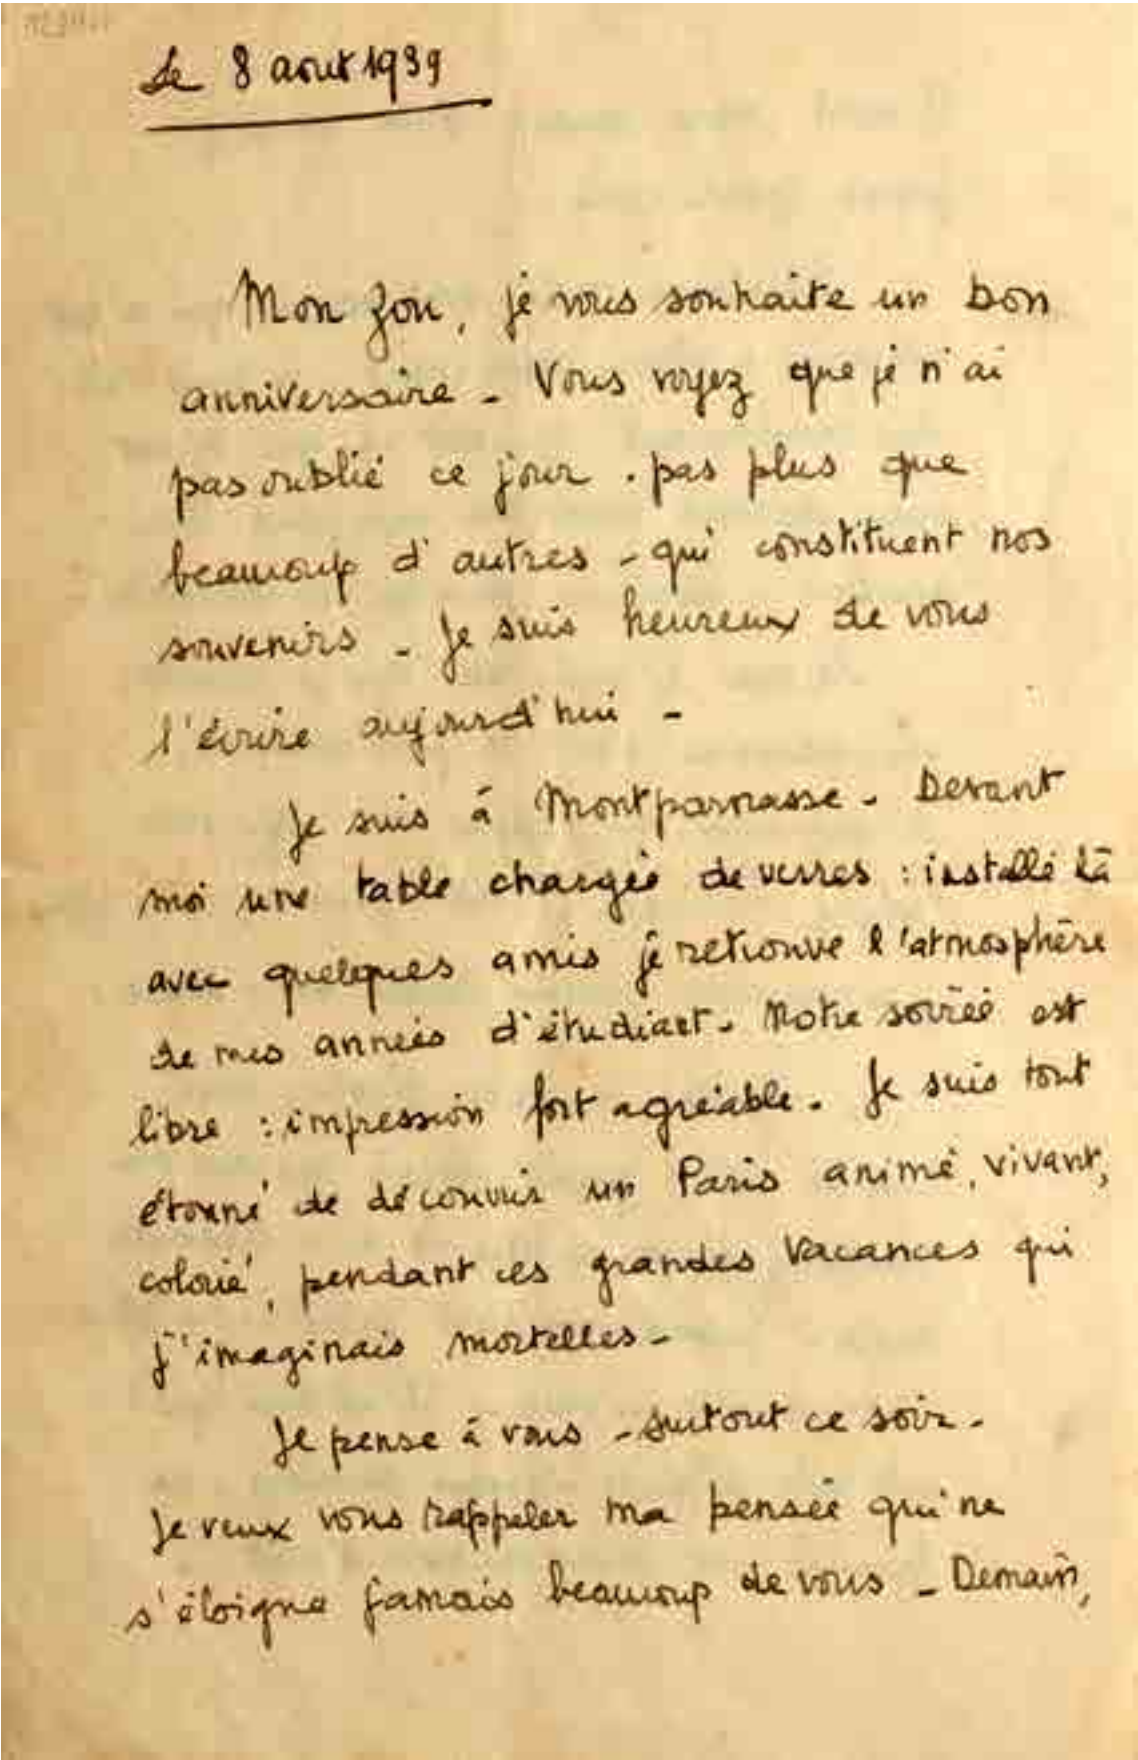 Le 8 aout 1939
Mon Zou, je vous souhaite un bon
anniversaire - Vous voyez que je n'ai
pas oublié ce jour . pas plus que
beaucoup d'autres - qui constituent nos
souvenirs - Je suis heureux de vous
l'écrire aujourd'hui -
Je suis à Montparnasse - Devant
moi une table chargée de verres : installé là
avec quelques amis je retrouve l'atmosphère
de mes années d'étudiant. Notre soirée est
libre : impression fort agréable. Je suis tout
étonné de découvrir un Paris animé, vivant,
colorié, pendant ces grandes vacances qui
j'imaginais mortelles -
Je pense à vous - surtout ce soir -
Je veux vous rappeler ma pensée qui ne
s'éloigne jamais beaucoup de vous - Demain,